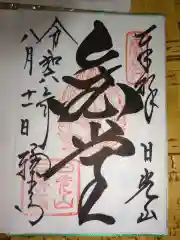 奉拝
日光山
堂
令和六年
八月十一日
輪王寺